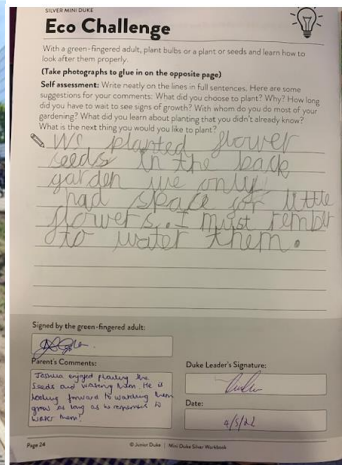 SILVER MINI DUKE
Eco Challenge
With a green-fingered adult, plant bulbs or a plant or seeds and learn how to
look after them properly.
(Take photographs to glue in on the opposite page)
Self assessment: Write neatly on the lines in full sentences. Here are some
suggestions for your comments: What did you choose to plant? Why? How long
did you have to wait to see signs of growth? With whom do you do most of your
gardening? What did you learn about planting that you didn't already know?
What is the next thing you would you like to plant?
We planted flower
seeds in the back
garden we only
had space for little
flowers. I must rembr
to water them.
Signed by the green-fingered adult:
Parent's Comments:
Joshua enjoyed planting the
seeds and watering them. He is
looking forward to watching them
grow as long as he remembers to
water them!
Duke Leader's Signature:
Date:
4/5/22
Page 24
© Junior Duke | Mini Duke Silver Workbook